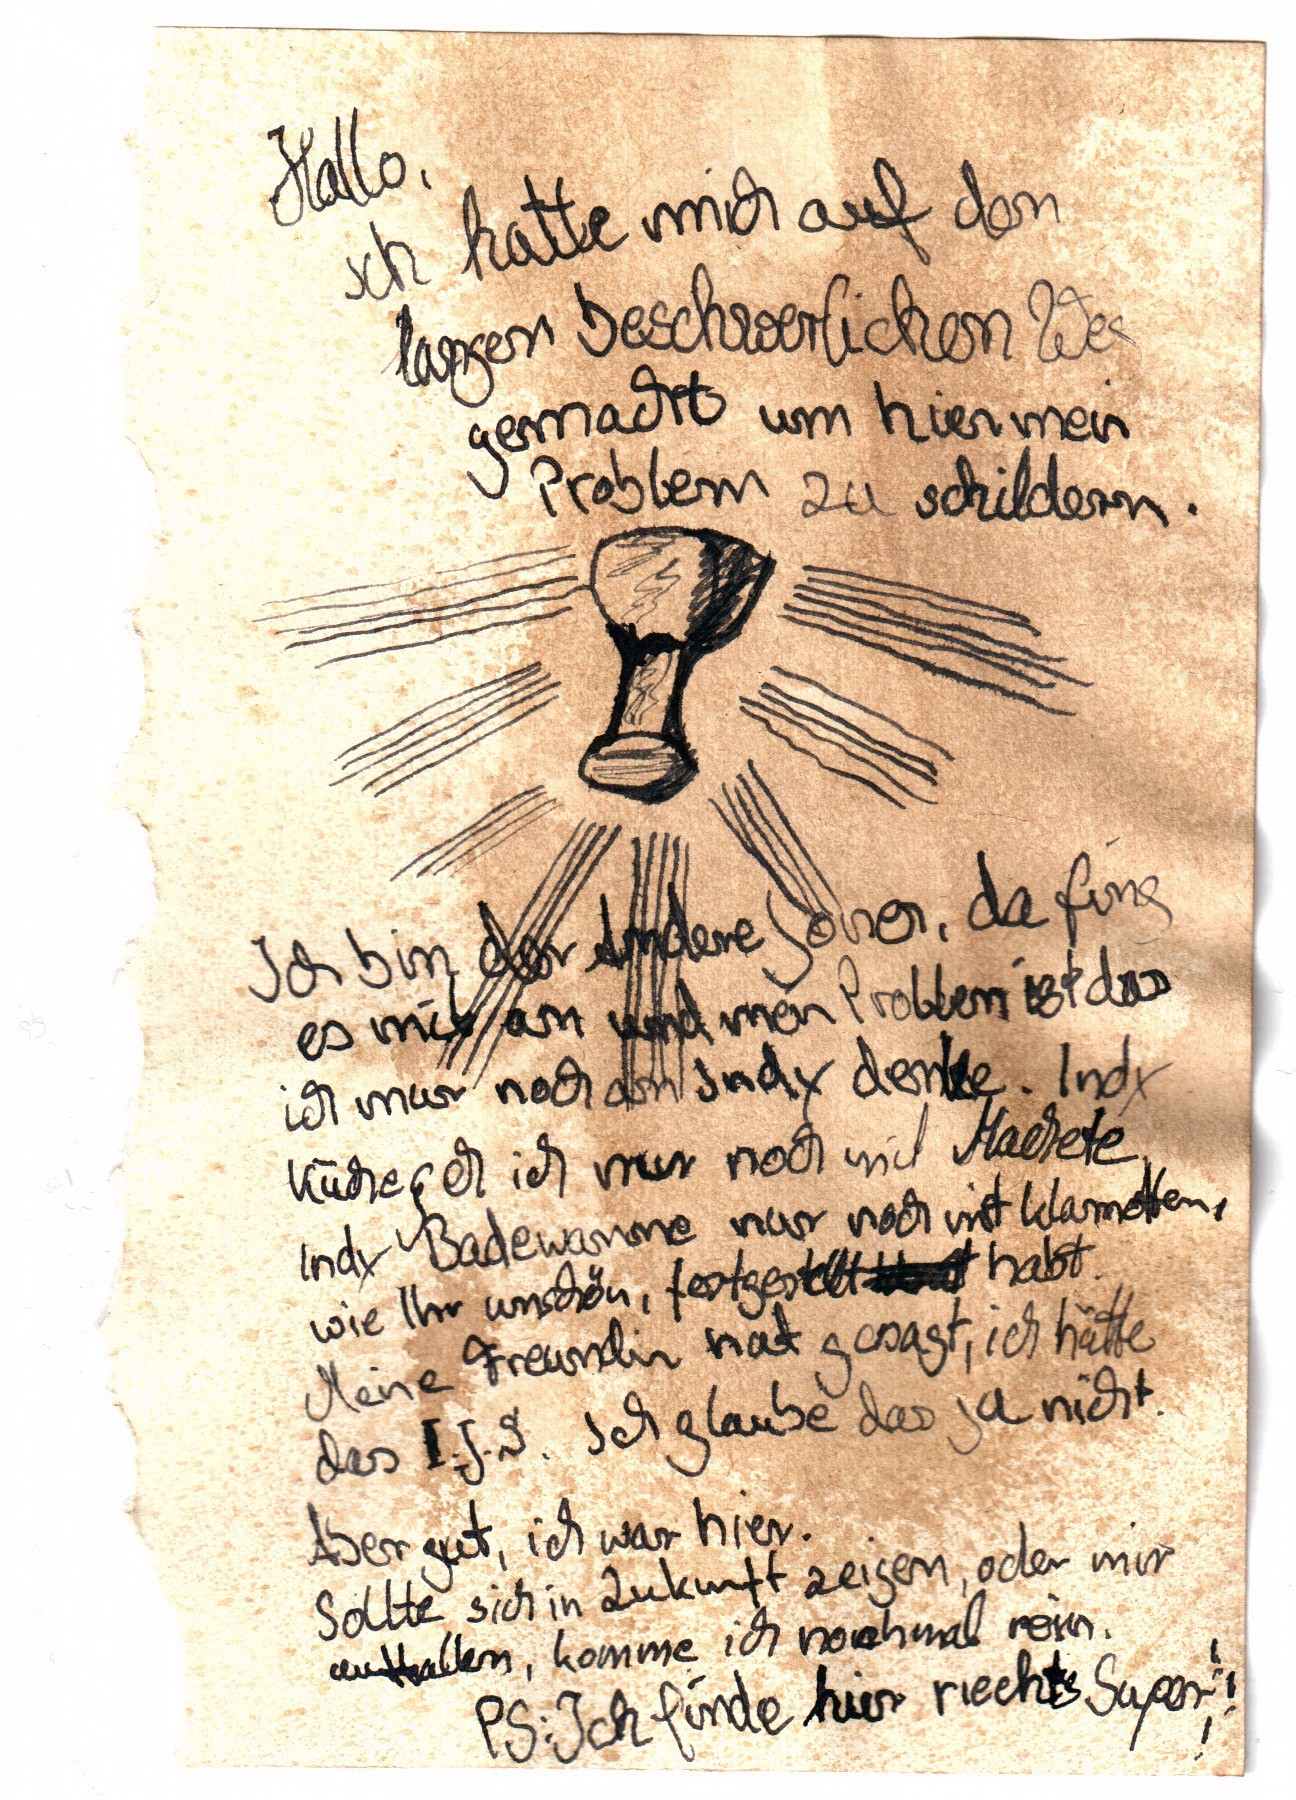 Hallo,
ich hatte mich auf den
langen beschwerlichen Weg
gemacht um hier mein
Problem zu schildern.
Ich bin der andere Joner, da fing
es mit an und mein Problem ist das
ich nur noch an Indy denke. In dy
Küche geh ich nur noch mit Machete,
In dy Badewanne nur noch mit Klamotten,
wie Ihr unschön, festgestellt habt.
Meine Freundin hat gesagt, ich hätte
das I.J.S. Ich glaube das ja nicht.
Aber gut, ich war hier.
Sollte sich in Zukunft zeigen, oder mir
auffallen, komme ich nochmal rein.
PS: Ich finde hier riechts Super!!